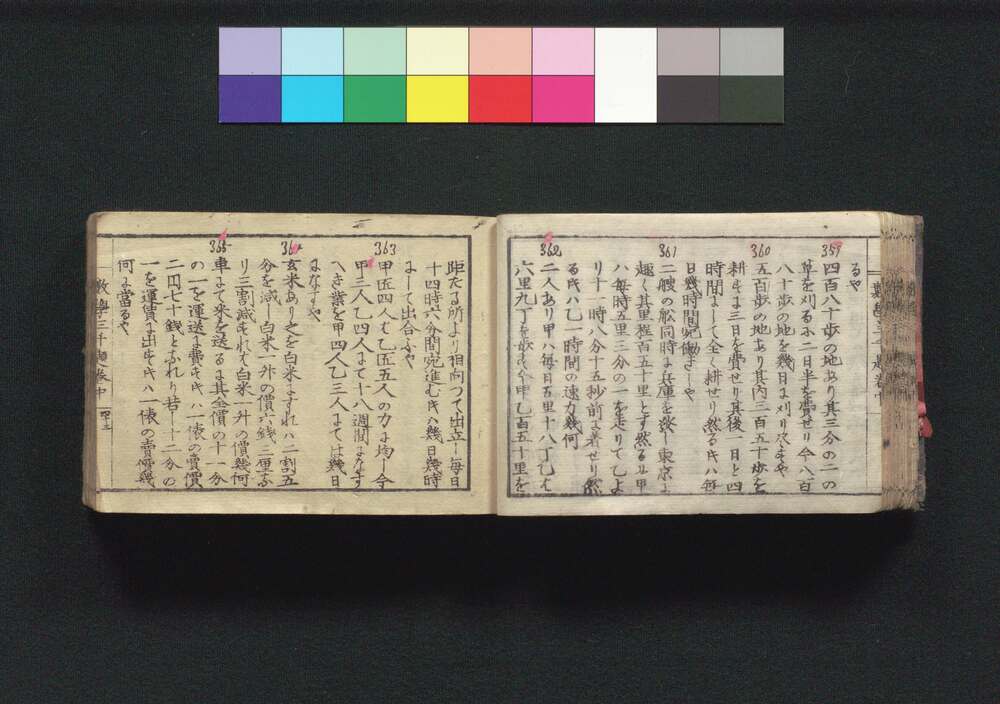 るや
359
四百八十歩の地あり其三分の二の
草を刈るに二日半を費せり今八百
八十歩の地を幾日に刈り尽すや
360
五百歩の地あり其内三百五十歩を
耕すに三日を費せり其後一日と四
時間にして全く耕せり然る時ハ毎
日幾時間宛働きしや
361
二艘の舩同時に兵庫を発し東京に
趣く其里程百五十里とす然るに甲
ハ毎時五里三分の一を走りて乙よ
り十一時八分十五秒前に着せり然
る時ハ乙一時間の速力幾何
362
二人あり甲ハ毎日五里十八丁乙は
六里九丁を歩す今甲乙百五十里を
距たる所より相向つて出立し毎日
十四時六分間宛進む時ハ幾日幾時
にして出合ふや
363
甲匹四人は乙匹五人の力に均し今
甲三人乙四人にて十八週間になす
へき業を甲四人乙三人にてハ幾日
になすや
364
玄米あり之を白米にすれハ二割五
分を減し白米一升の價六銭三厘な
り三割減すれハ白米一升の價幾何
365
車にて米を送るに其全價の十一分
の一を運送に費す時ハ一俵の賣價
二円七十銭とふれり若し十二分の
一を運賃に出す時ハ一俵の賣價幾
何に當るや
数學三千題巻中
四十三